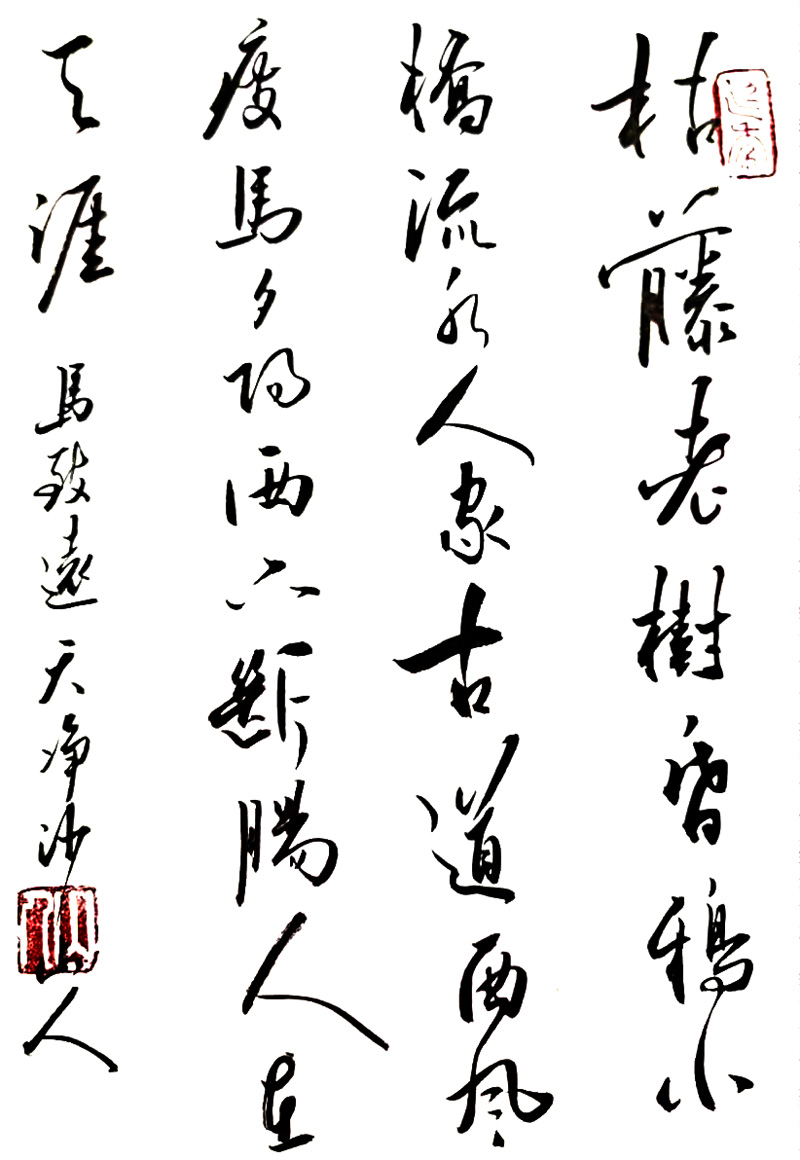 枯藤老樹昏鴉小
橋流水人家古道西風
瘦馬夕陽西下斷腸人在
天涯 馬致遠天净沙 人